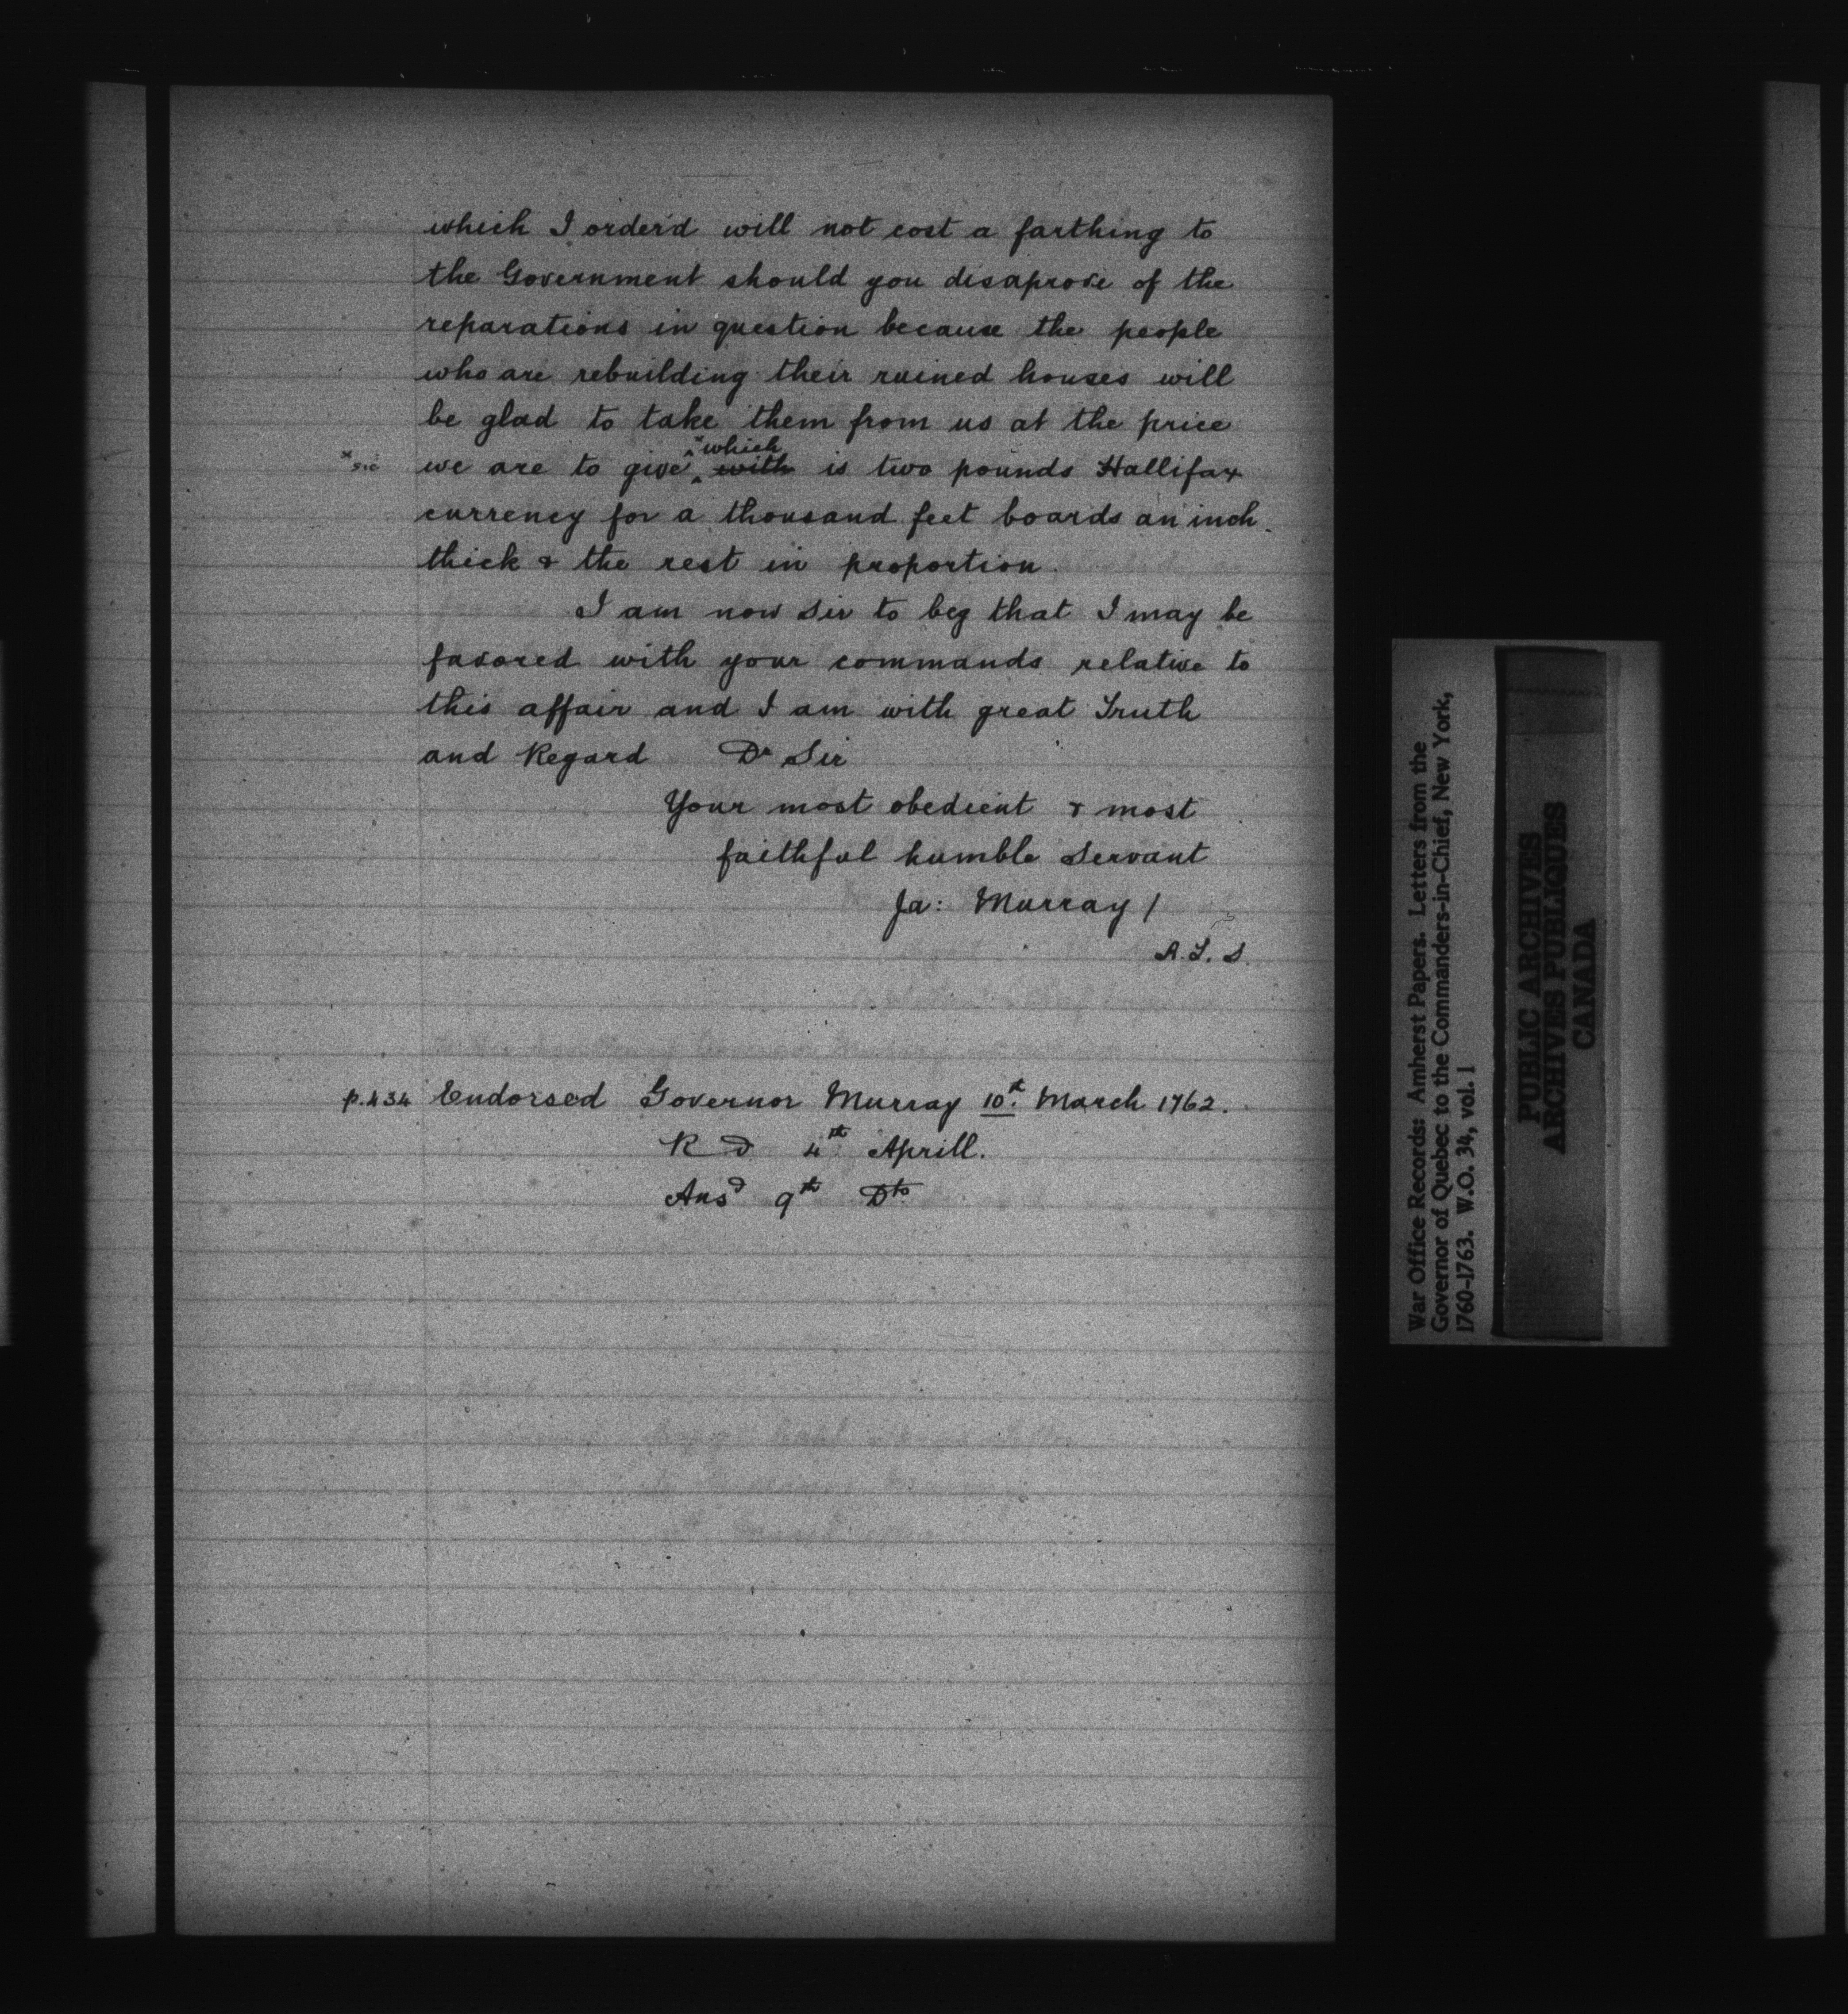 which I order'd will not cost a farthing to
the Government should you disaprove of the
reparations in question because the people
who are rebuilding their ruined houses will
be glad to take them from us at the price
x which
x sic we are to give ^ with is two pounds Hallifax
currency for a thousand feet boards an inch
thick & the rest in proportion.
I am now Sir to beg that I may be
favored with your commands relative to
this affair and I am with great Truth
and Regard Dr Sir
Your most obedient & most
faithful humble Servant
Ja: Murray /
A. L. S.
p.434 Endorsed Governor Murray 10th March 1762.
R d 4th Aprill.
Ansd 9th Dto
War Office Records: Amherst Papers. Letters from the
Governor of Quebec to the Commanders-in-Chief, New York,
1760-1763. W.O. 34, vol. 1
PUBLIC ARCHIVES
ARCHIVES PUBLIQUES
CANADA